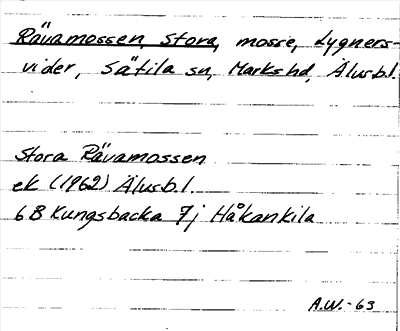 Rävamossen, Stora, mosse, Lygners-
vider, Sätila sn, Marks hd, Älvsb.l.
Stora Rävamossen
ek (1962) Älvsb.l.
6B Kungsbacka 7j Håkankila
A.W.-63